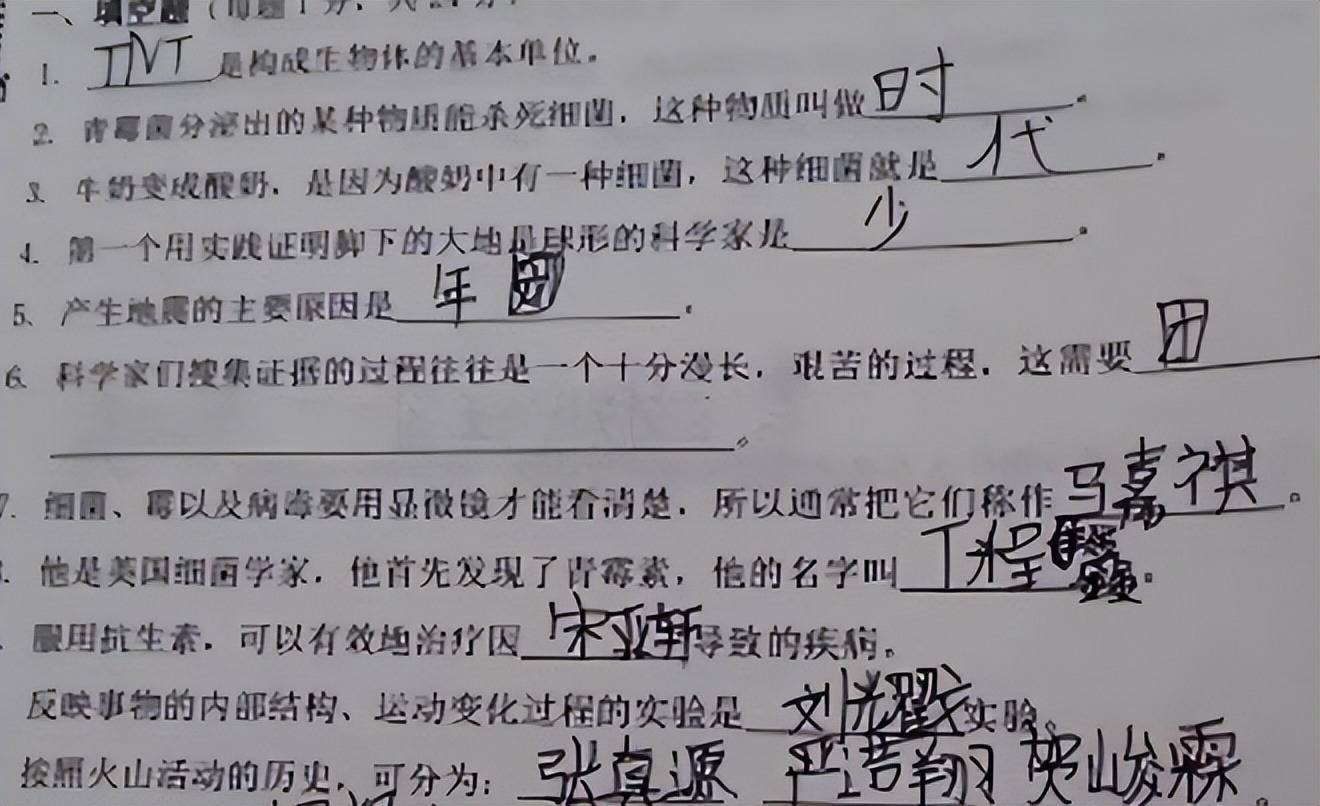 一、填空题（每题1分，共24分）
1. TNT 是构成生物体的基本单位。
2. 青霉菌分泌出的某种物质能杀死细菌，这种物质叫做 时 。
3. 牛奶变成酸奶，是因为酸奶中有一种细菌，这种细菌就是 代 。
4. 第一个用实践证明脚下的大地是球形的科学家是 少 。
5、产生地震的主要原因是 年 。
6、科学家们搜集证据的过程往往是一个十分漫长，艰苦的过程。这需要 团
。
7. 细菌、霉以及病毒要用显微镜才能看清楚，所以通常把它们称作 马嘉祺 。
他是英国细菌学家，他首先发现了青霉素，他的名字叫 丁程 。
服用抗生素，可以有效地治疗因 宋亚轩 导致的疾病。
反映事物的内部结构、运动变化过程的实验是 刘 实验。
按照火山活动的历史，可分为： 张真源 严浩翔 峻霖 。